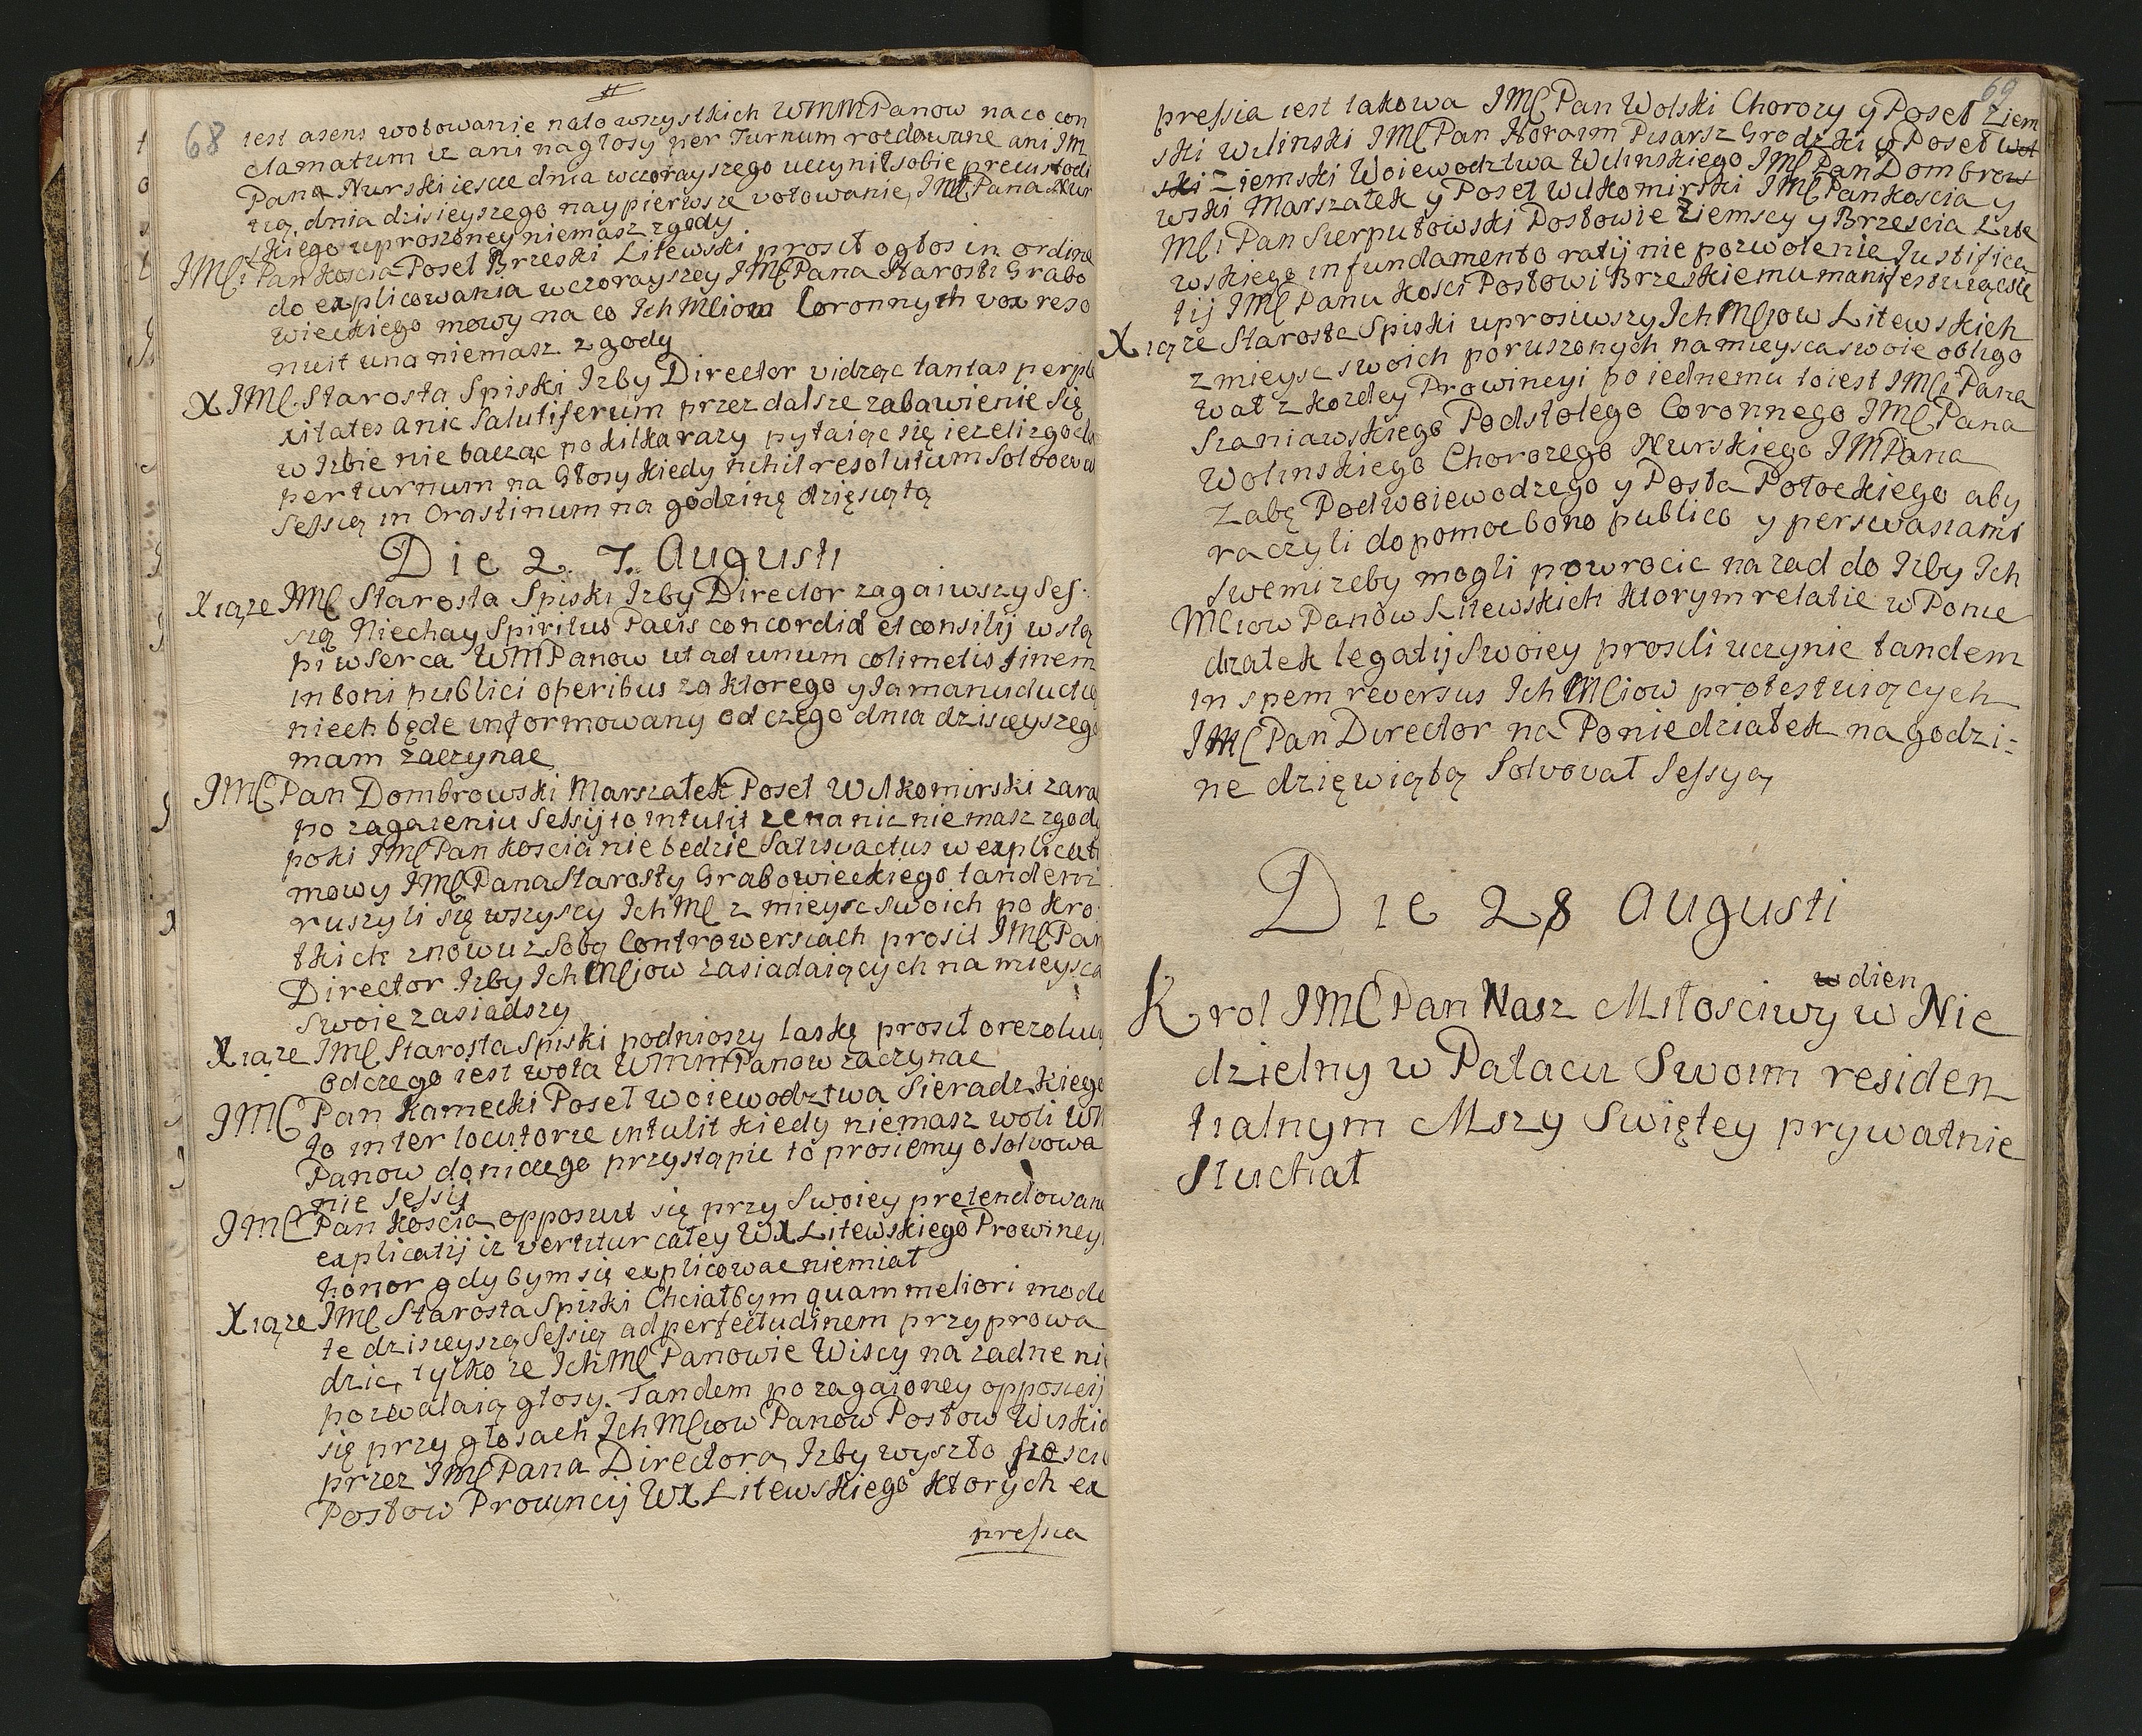 68
iest asens wotowanie nato wszystkich WMMPanow naco con
clamatum iz ani nagłosy per Turnum rozdawane ani IM
Pana Nurski iescze dnia wczorayszego uczynił sobie precustodi
tią, dnia dzisieyszego naypierwsze votowanie, IMC Pana Nur
skiego uproszoney niemasz zgody
IMCi Pan Koscia Poseł Brzeski Litewski prosił ogłos in ordine
do explicowania wczorayszey IMC Pana Starosti Grabo
wieckiego mowy na co Ich MCiow Coronnych vox reso
nuit una niemasz zgody
X IMC. Starosta Spiski Izby Director vidząc tantas perple
xitates a nic Salutiferum przez dalsze zabawienie się
w Izbie nie bacząc po kilka razy pytaiąc się iezeli zgoda
per turnum na Głosy kiedy nihil resolutum Solvowa
Sessią in Crastinum na godzinę dzięsiątą
Die 27. Augusti
Xiąze IMC Starosta Spiski Izby Director zagaiwszy Ses:
sią Niechay Spiritus Pacis concordiæ et consilij wstą
pi w Serca WMPanow ut ad unum colimetis finem
in boni publici operibus za ktorego y Ia manuductią
niech będe informowany od czego dnia dzisieyszego
mam zaczynac
IMC Pan Dombrowski Marszałek Poseł Wiłkomirski zara
po zagaieniu Sessij to intulit ze na nic nie masz zgody
poki IMC Pan Koscia nie bedzie Satisvactus w explicati
mowy IMC Pana Starosty Grabowieckiego tandem
ruszyli się wszyscy Ich MC z mieysc swoich po kro
tkich znowu z Sobą Controwersiach prosił IMC Pan
Director Izby Ich MCiow zasiadaiących na mieysca
Swoie zasiadszy
Xiąze IMC Starosta Spiski podnioszy laskę prosił o rezoluci
od czego iest wola WMMPanow zaczynac
IMC Pan Kamecki Poseł Woiewodztwa Sieradzkiego
to inter locutorie intulit kiedy niemasz woli WM
Panow do niczego przystąpic to prosiemy o Solvowa
nie Sessij
IMC Pan Koscia opposuit się przy Swoiey pretendowane
explicatij iz vertitur całey WX Litewskiego Prowincyi
honor gdybym się explicowac niemiał
Xiąze IMC Starosta Spiski Chciałbym quam meliori modo
te dzisieyszą Sessią ad perfectudinem przyprowa
dzic, tylko ze Ich MC Panowie Wiscy na zadne nie
pozwalaią głosy. Tandem po zagaioney opposicij
się przy głosach Ich MCiow Panow Posłow Wiskich
przez IMC Pana Directora, Izby wyszło szesciu
Posłow Prowincij WX Litewskiego ktorych ex
pressia
69
pressia iest takowa IMC Pan Wolski Chorozy y Poseł Ziem
ski Wilinski IMC Pan Horaim Pisarsz Grodzki y Poseł wol
ski Ziemski Woiewodztwa Wilinskiego IMC Pan Dombrow
wski Marszałek y Poseł Wiłkomirski IMC Pan Koscia y
MCi Pan Sierputowski Posłowie Ziemscy y Brzescia Lite
wskiego in fundamento ratij nie pozwolenie Iustifica
tij IMC Panu Kosci Posłowi Brzeskiemu manifestuiąc się
Xiąze Starosta Spiski uprosiwszy Ich MCiow Litewskich
z mieysc swoich poruszonych na mieysca swoie obligo
wał z kozdey Prowincyi po iednemu toiest IMCi Pana
Szaniawskiego Podstolego Coronnego IMC Pana
Wolinskiego Chorozego Nurskiego IMPana
Zabę Podwoiewodzego y Posła Połockiego aby
raczyli dopomoc bono publico y perswasiami
swemi zeby mogli powrocic na zad do Izby Ich
MCiow Panow Litewskich ktorym relatie w Ponie
dzałek legatij Swoiey prosili uczynic tandem
in spem reversus Ich MCiow protestuiących
IMC Pan Director na Poniedziałek na godzi:
ne dzięwiątą Solvovał Sessyą
Die 28 Augusti
w dien
Krol IMC Pan Nasz Miłosciwy w Nie
dzielny w Pałacu Swoim residen
tialnym Mszy Swiętey prywatnie
Słuchał